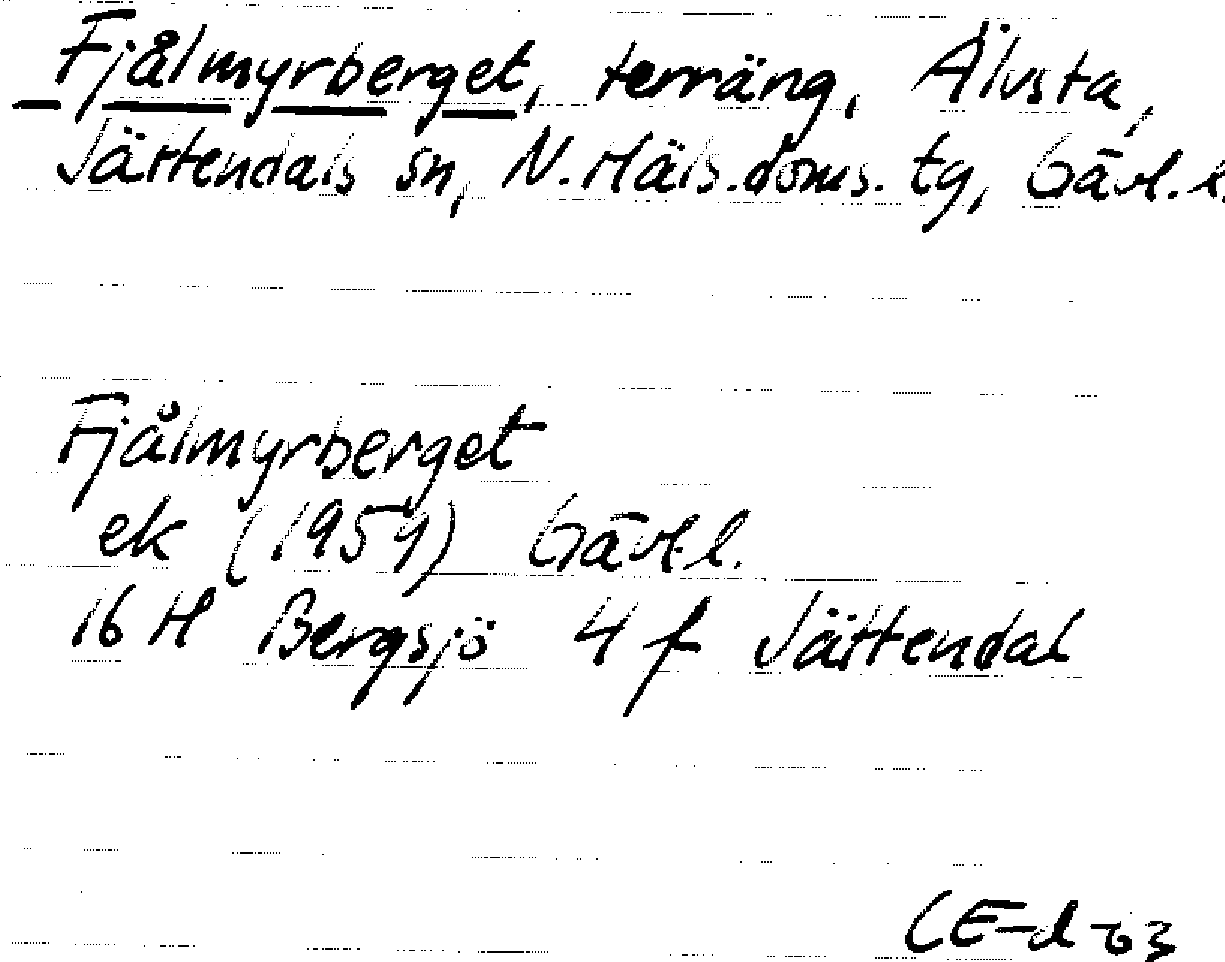 Fjålmyrberget, terräng, Älvsta,
Jättendals sn, N.Häls.doms.tg, Gävl.l.
Fjålmyrberget
ek (1959) Gävl.l.
16 H Bergsjö 4 f Jättendal